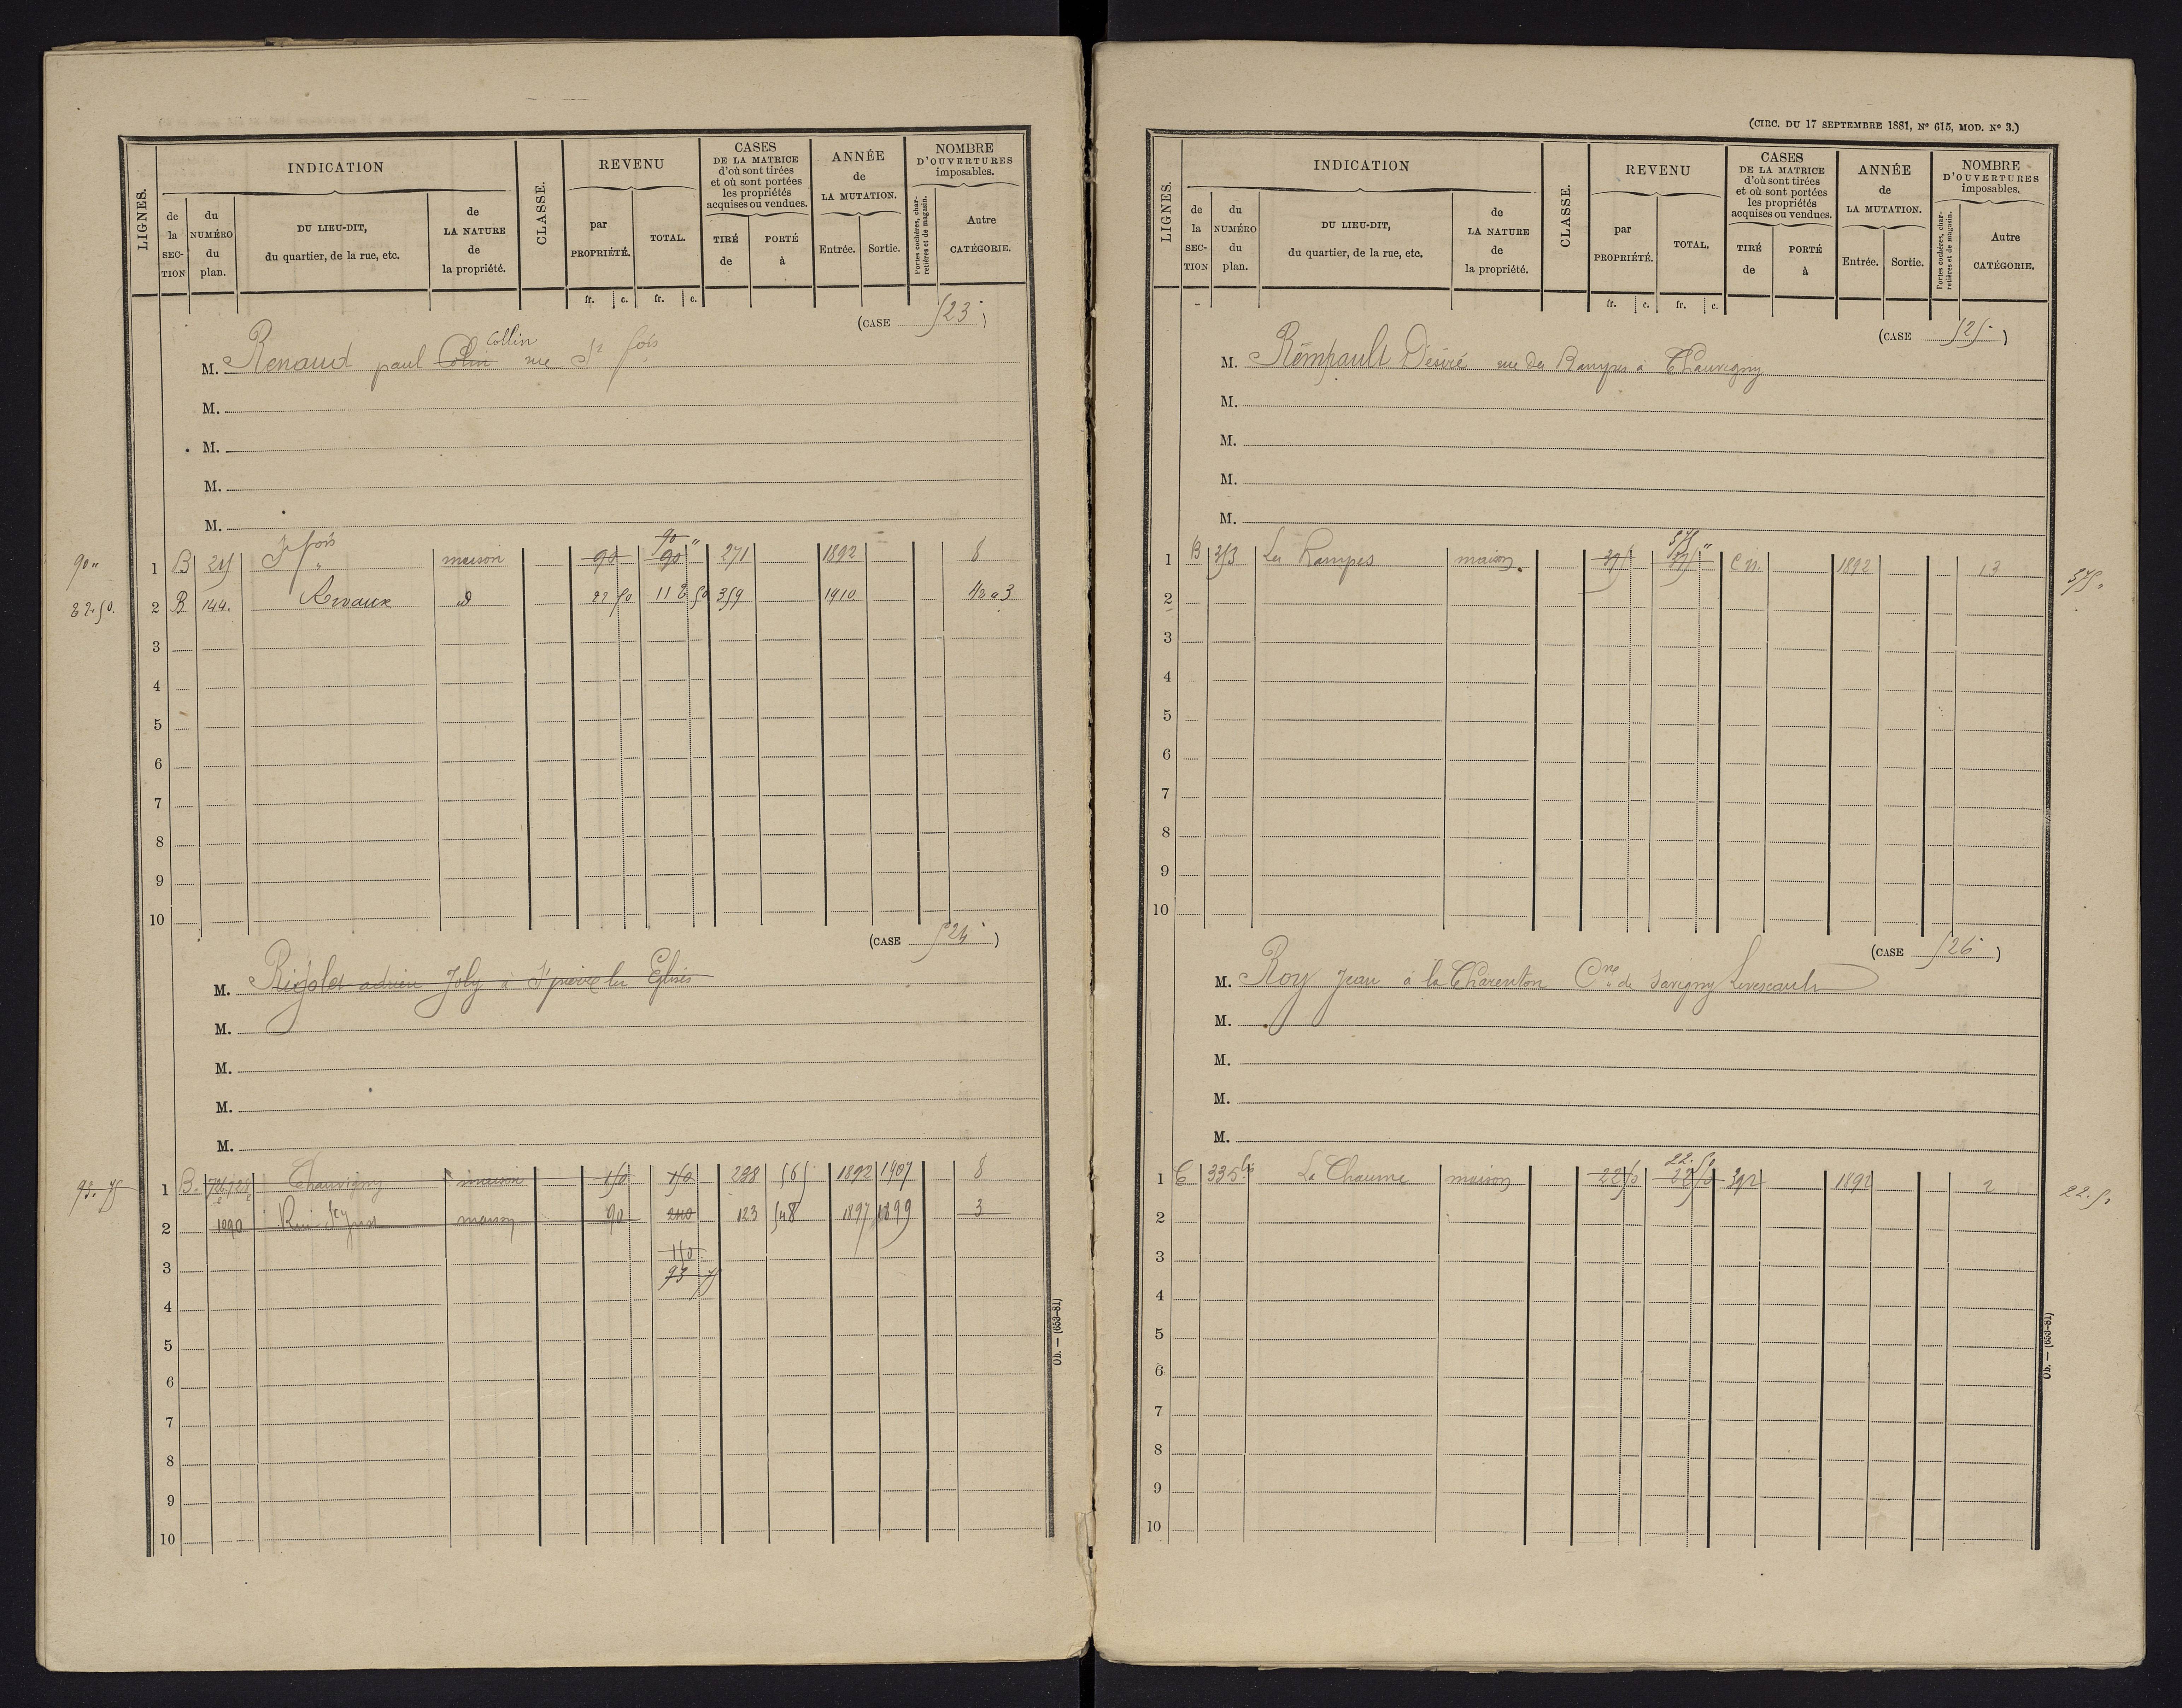 LIGNES.
INDICATION
de la SECTION
du NUMÉRO du plan.
DU LIEU-DIT, du quartier, de la rue, etc.
de LA NATURE de la propriété.
CLASSE.
REVENU
par PROPRIÉTÉ.
TOTAL.
CASES DE LA MATRICE d'où sont tirées et où sont portées les propriétés acquises ou vendues.
TIRÉ de
PORTÉ à
ANNÉE de LA MUTATION.
Entrée.
Sortie.
NOMBRE D'OUVERTURES imposables.
Portes cochères, charretières et de magasin.
Autre CATÉGORIE.
fr. c. fr. c.
(CASE 523)
M. Renaud paul Colin Collin rue St fois
M.
M.
M.
M.
90
90 " 1 B 245 St fois " maison 90 90 " 271 1892 8
22.50. 2 B 144. Rivaux d 22 50 112 50 359 1910 4 2 a 3
3
4
5
6
7
8
9
10
(CASE 524)
M. Rigolet adrien Joly à St pierre les Eglises
M.
M.
M.
M.
93. 75 1 B. Chauvigny maison 150 150 238 565 1892 1907 8
2 1290 maison 90 240 123 548 1897 1899 3
150
3 93 75
4
5
6
7
8
9
10
Ob. — (658-81)
(CIRC. DU 17 SEPTEMBRE 1881, N° 615, MOD. N° 3.)
LIGNES.
INDICATION
de la SECTION
du NUMÉRO du plan.
DU LIEU-DIT, du quartier, de la rue, etc.
de LA NATURE de la propriété.
CLASSE.
REVENU
par PROPRIÉTÉ.
TOTAL.
CASES DE LA MATRICE d'où sont tirées et où sont portées les propriétés acquises ou vendues.
TIRÉ de
PORTÉ à
ANNÉE de LA MUTATION.
Entrée.
Sortie.
NOMBRE D'OUVERTURES imposables.
Portes cochères, charretières et de magasin.
Autre CATÉGORIE.
fr. c. fr. c.
(CASE 525)
M. Rempault Désiré rue des Rampes à Chauvigny
M.
M.
M.
M.
1 B 353 Les Rampes maison. C n. 1892 13
2
3
4
5
6
7
8
9
10
(CASE 526)
M. Roy Jean à la Charenton Cne de Savigny Levescault
M.
M.
M.
M.
22.50
1 C 335 bis La Chaume maison 22 50 22 50 392 1892 2 22.50
2
3
4
5
6
7
8
9
10
Ob. — (658-81)